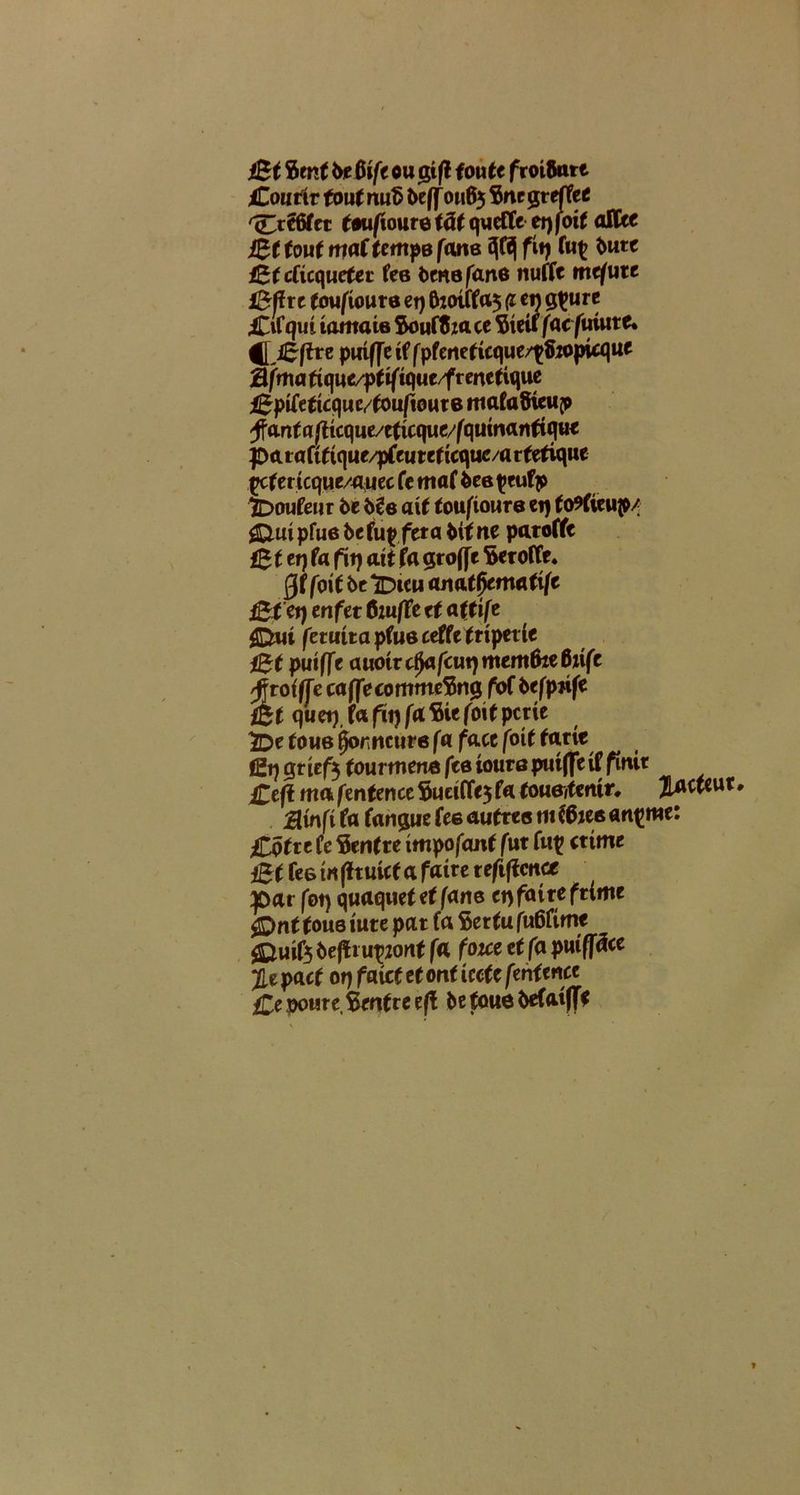 Et vent de bise ou gist toute froidure
Courir tout nud dessoubz vne gresle
Trēbler tousiours tāt quelle en soit allee
Et tout mal temps sans q̄lq̄ fin luy dure
Et clicqueter les dens sans nulle mesure
Estre tousiours en broillaz ⁊ en gyure
Cil qui iamais vouldra ce vieil lac suiure.
¶ Estre puisse il lpleneticque/ydropicque
Asmatique/ptisique/frenetique
Epileticque/tousiours maladieux
Fantasticque/eticque/squinantique
Paralitique/pleureticque/artetique
Yctericque/auec le mal des yeulx
Douleur de dēs ait tousiours en ꝯtieux/
Qui plus de luy fera dit ne parolle
Et en la fin ait la grosse verolle.
Il soit de Dieu anathematise
Et en enfer brusle et attise
Qui seruira plus celle triperie
Et puisse auoir chascun membre brise
Froisse casse comme vng sol desprise
Et quen la fin sa vie soit perie
De tous honneurs sa face soit tarie
En griefz tourmens ses iours puisse il finir
Cest ma sentence vueillez la tous tenir. Lacteur.
Ainsi la langue les autres mēbres anyme:
Cōtre le ventre imposant sur luy crime
Et les instruict a faire resistence
Par son quaquet et sans en faire frime
Ont tous iure par la vertu sublime
Quilz destruyront sa force et sa puissāce
Le pact on faict et ont iecte sentence
Ce poure ventre est de tous delaisse